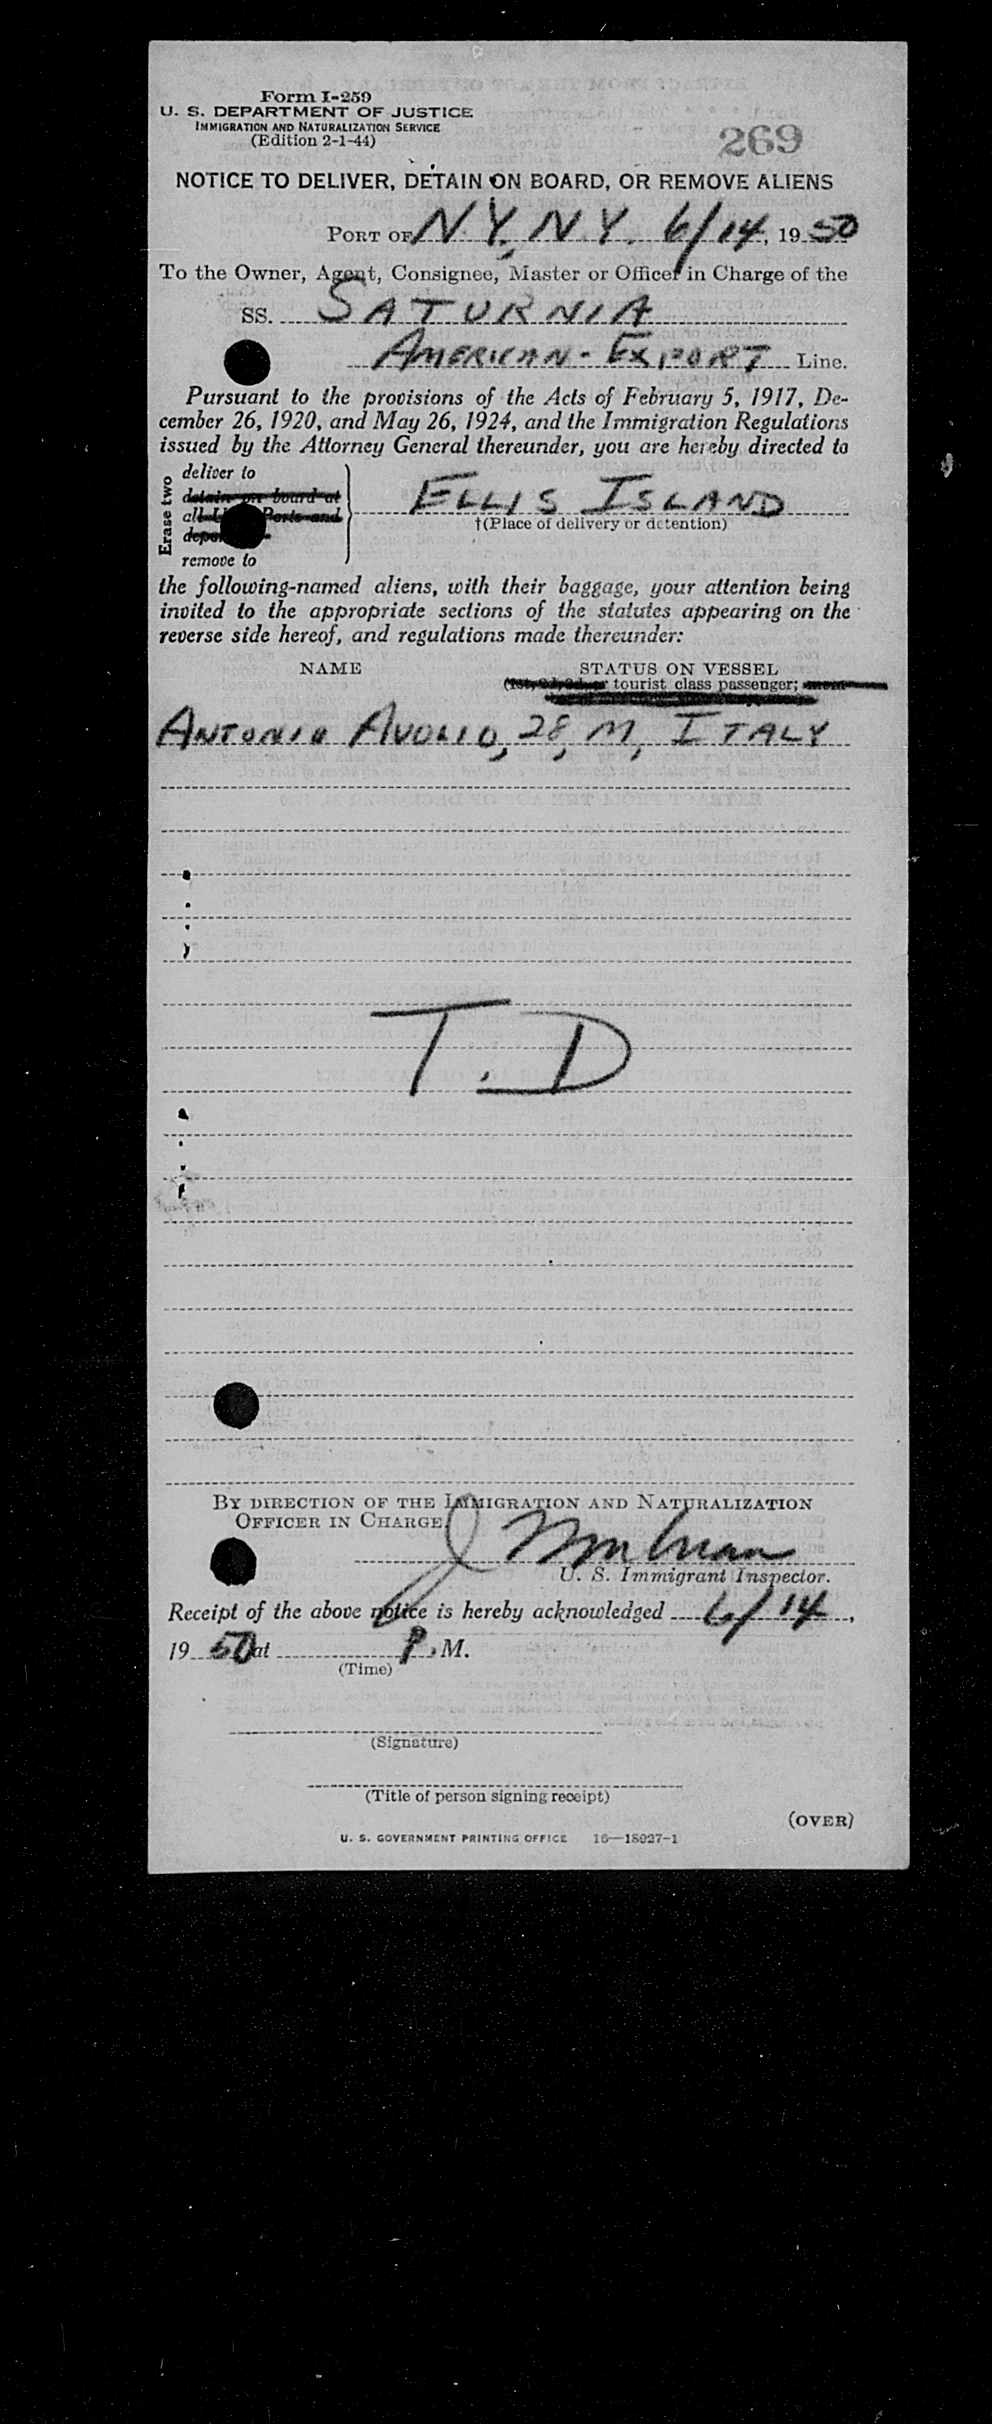 Form I-259
U. S. DEPARTMENT OF JUSTICE
IMMIGRATION AND NATURALIZATION SERVICE
(Edition 2-1-44)
269
NOTICE TO DELIVER, DETAIN ON BOARD, OR REMOVE ALIENS
PORT OF N.Y., N.Y. 6/14, 1950
To the Owner, Agent, Consignee, Master or Officer in Charge of the
SS. SATURNIA
AMERICAN-EXPORT Line.
Pursuant to the provisions of the Acts of February 5, 1917, De-
cember 26, 1920, and May 26, 1924, and the Immigration Regulations
issued by the Attorney General thereunder, you are hereby directed to
Erase two
deliver to
detain on board at
all Ports and
remove to
ELLIS ISLAND
†(Place of delivery or detention)
the following-named aliens, with their baggage, your attention being
invited to the appropriate sections of the statutes appearing on the
reverse side hereof, and regulations made thereunder:
NAME STATUS ON VESSEL
(1st, 2d, 3d, or tourist class passenger;
ANTONIO AVOLIO, 28, M, ITALY
T.D
BY DIRECTION OF THE IMMIGRATION AND NATURALIZATION
OFFICER IN CHARGE
U. S. Immigrant Inspector.
Receipt of the above notice is hereby acknowledged 6/14,
1950 at P.M.
(Time)
(Signature)
(Title of person signing receipt)
(OVER)
U. S. GOVERNMENT PRINTING OFFICE 16—18927-1